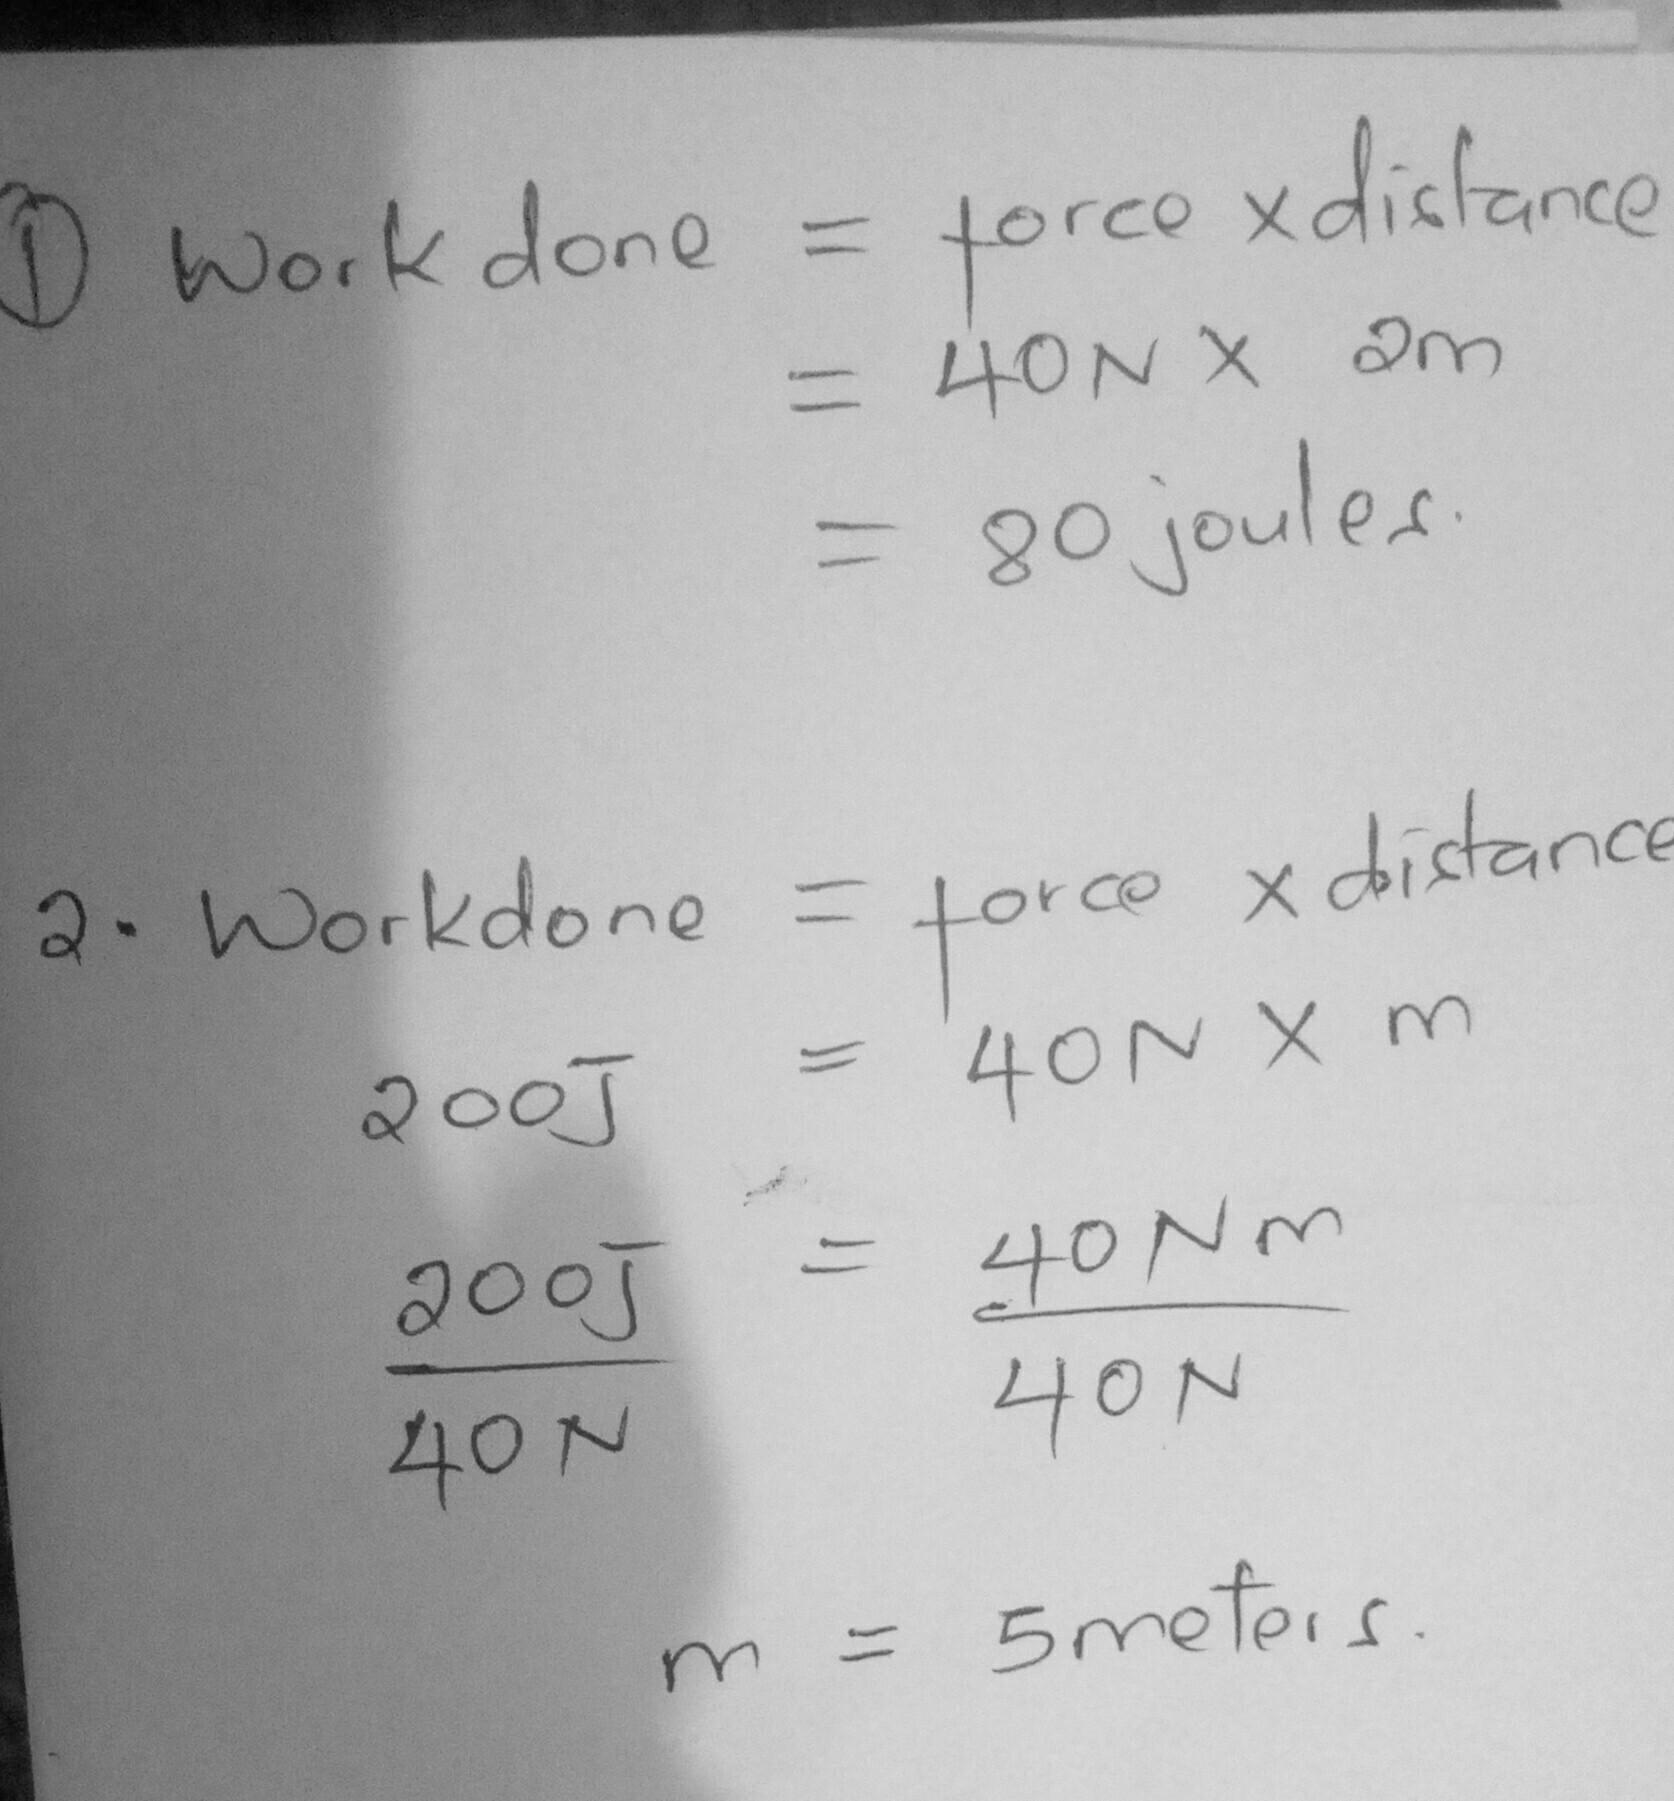 ① Work done = force x distance
= 40N X 2m
= 80 joules.
2. Workdone = force x distance
200J = 40N X m
200J = 40Nm
40N 40N
m = 5meters.